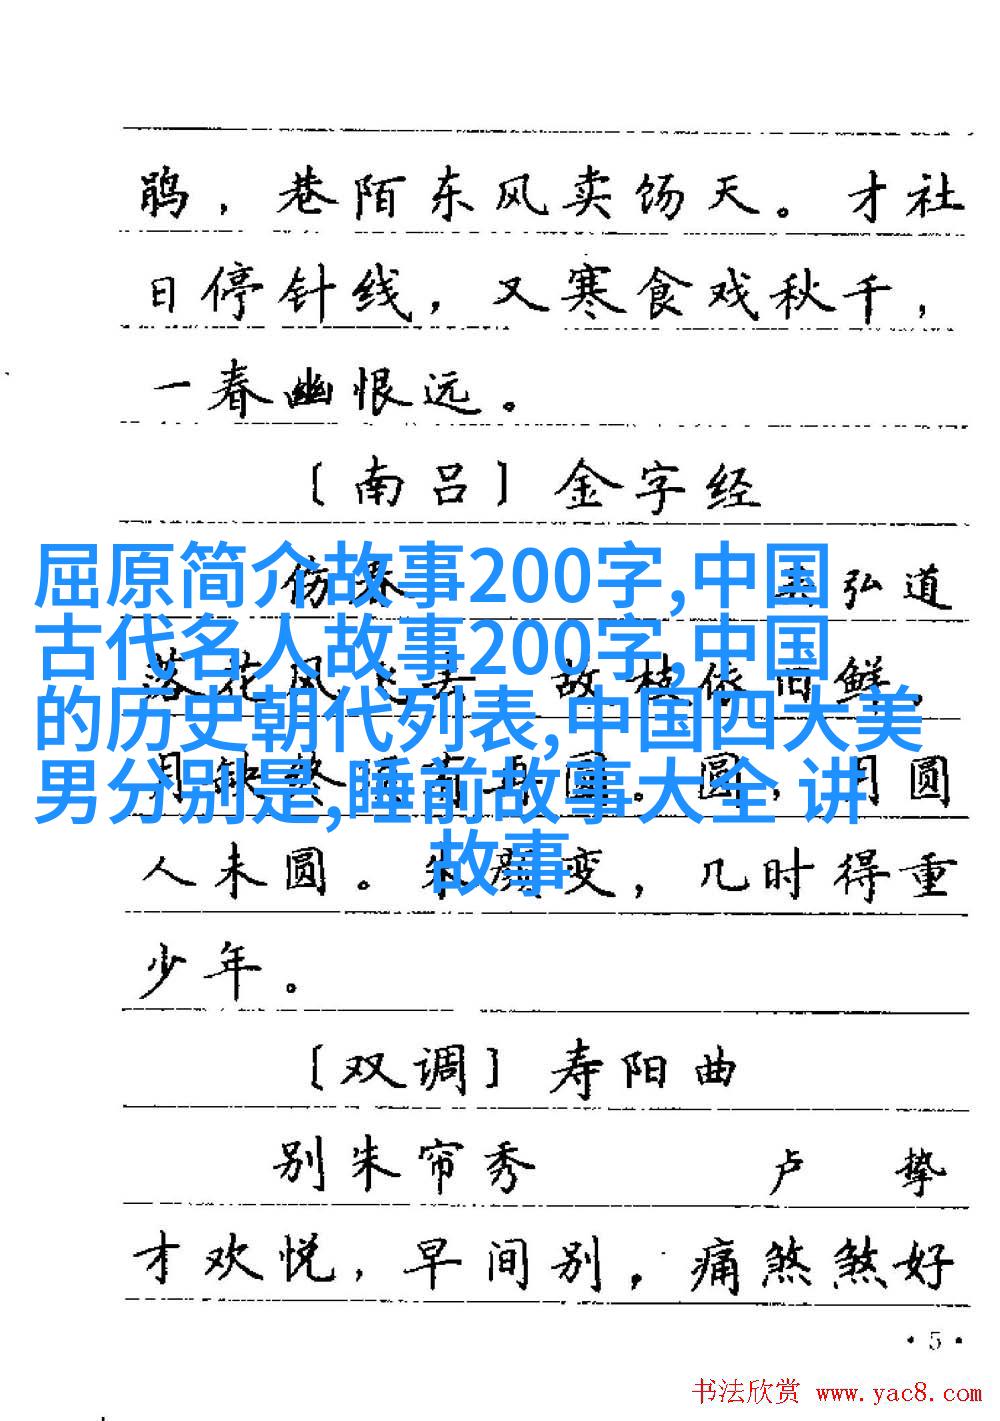 鹃，巷陌东风卖饧天。才社
日停针线，又寒食戏秋千，
一春幽恨远。
〔南吕〕金字经
伤春 弘道
屈原简介故事200字,中国
古代名人故事200字,中国
的历史朝代列表,中国四大美
男分别是,睡前故事大全 讲
故事
落花风飞去 故枝依旧鲜。
月缺终须有再圆。圆，月圆
人未圆。朱颜变，几时得重
少年。
〔双调〕寿阳曲
别朱帘秀 卢 挚
才欢悦，早间别，痛煞煞好
·5·
书法欣赏 www.yac8.com